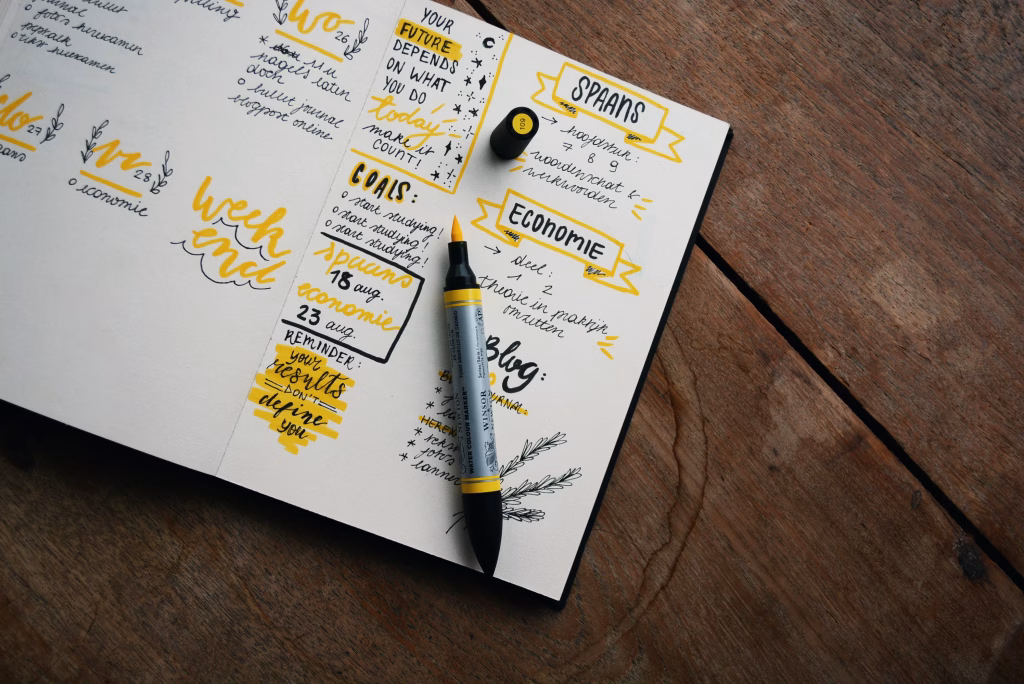 journal
o fotos hiervoor
WO 26
nagels laten
doen
o bullet journal
blogpost online
do 27
vr 28
o economie
week
end
YOUR
FUTURE
DEPENDS
ON WHAT
YOU DO
today
make it
COUNT!
GOALS:
o start studying!
o start studying!
o start studying!
spaans
18 aug.
economie
23 aug.
REMINDER:
your
results
DON'T
define
you
SPAANS
→ hoofdstuk:
7 8 9
woordenschat &
werkwoorden
ECONOMIE
→ deel:
1 2
theorie in praktijk
omzetten
Blog:
JOURNAL:
109
WATER COLOUR MARKER
WINSOR